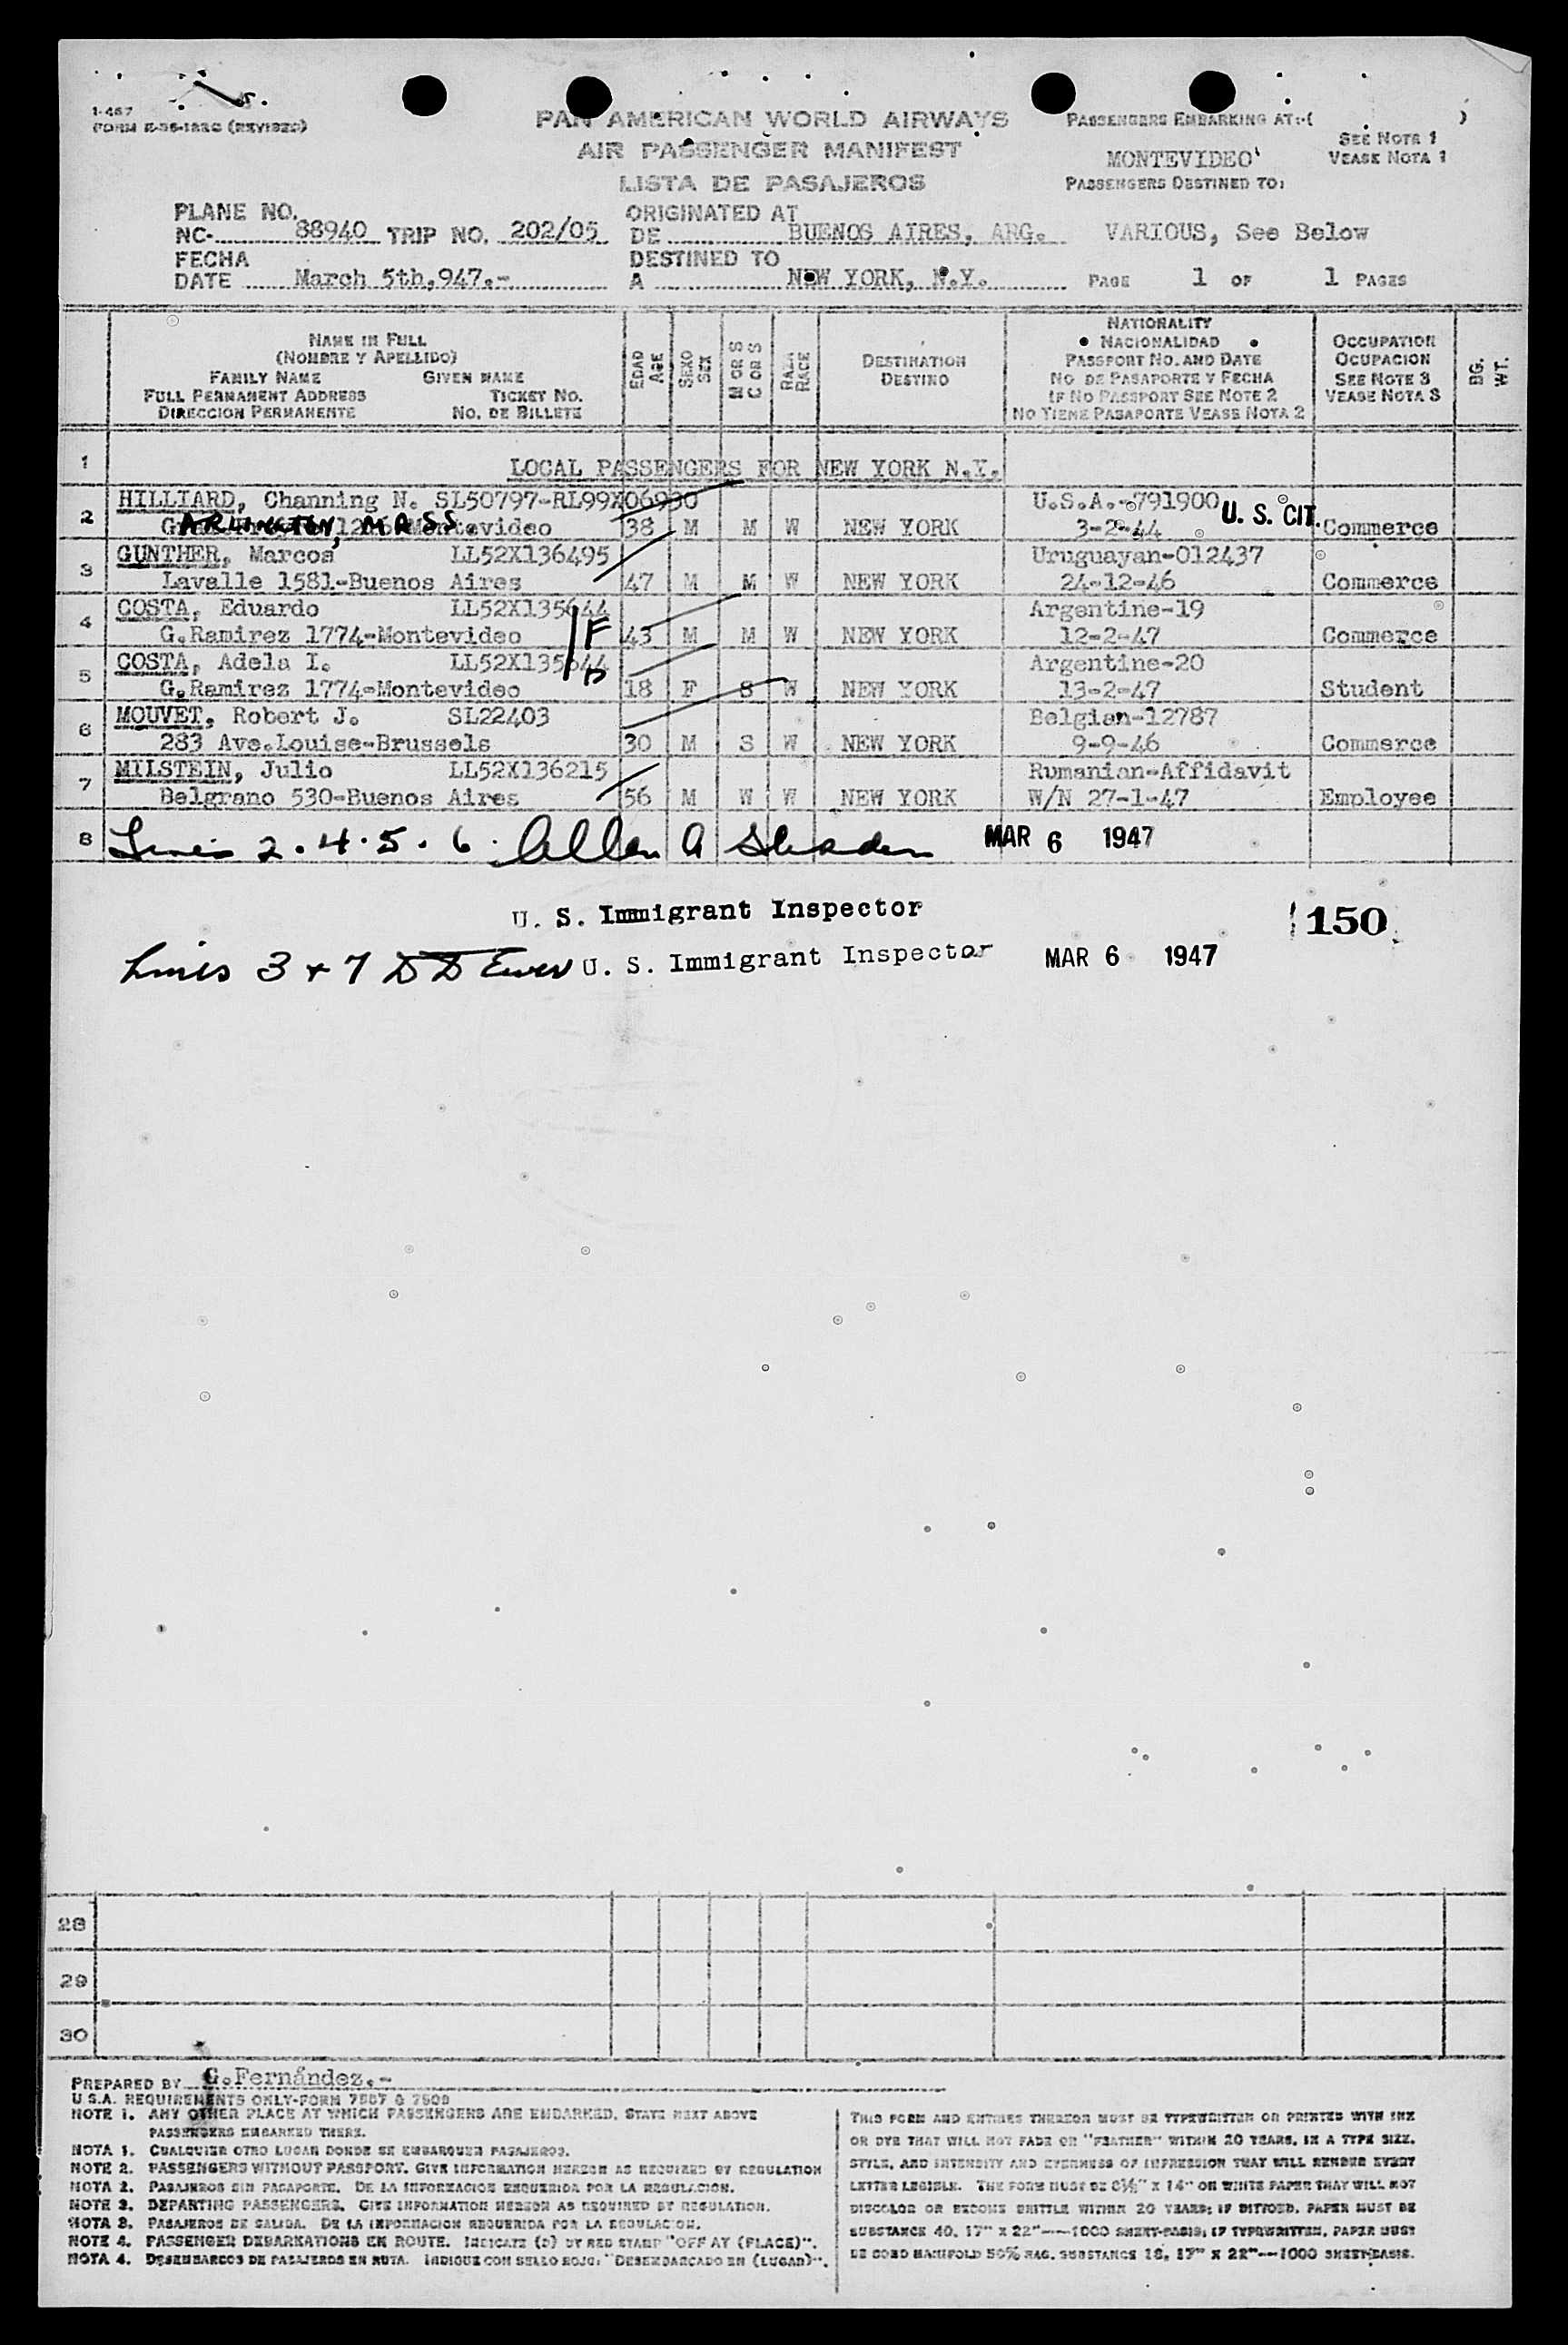 I-467
FORM E-36-132G (REVISED)
PAN AMERICAN WORLD AIRWAYS
AIR PASSENGER MANIFEST
LISTA DE PASAJEROS
PASSENGERS EMBARKING AT:-( )
SEE NOTE 1
MONTEVIDEO
VEASE NOTA 1
PASSENGERS DESTINED TO:
PLANE NO.
NC- 88940 TRIP NO. 202/05
ORIGINATED AT
DE BUENOS AIRES, ARG.
VARIOUS, See Below
FECHA
DATE March 5th,947.-
DESTINED TO
A NEW YORK, N.Y.
PAGE 1 OF 1 PAGES
NAME IN FULL
(NOMBRE Y APELLIDO)
FAMILY NAME GIVEN NAME
FULL PERMANENT ADDRESS TICKET NO.
DIRECCION PERMANENTE NO. DE BILLETE
EDAD AGE
SEXO SEX
M OR S C OR S
RAZA RACE
DESTINATION
DESTINO
NATIONALITY
NACIONALIDAD
PASSPORT NO. AND DATE
NO DE PASAPORTE Y FECHA
IF NO PASSPORT SEE NOTE 2
NO TIENE PASAPORTE VEASE NOTA 2
OCCUPATION
OCUPACION
SEE NOTE 3
VEASE NOTA 3
BG. WT.
1 LOCAL PASSENGERS FOR NEW YORK N.Y.
2 HILLIARD, Channing N. SL50797-RL99X06930 U.S.A.-791900 U. S. CIT.
ARLINGTON, MASS. Montevideo 38 M M W NEW YORK 3-2-44 Commerce
3 GUNTHER, Marcos LL52X136495 Uruguayan-012437
Lavalle 1581-Buenos Aires 47 M M W NEW YORK 24-12-46 Commerce
4 COSTA, Eduardo LL52X135644 Argentine-19
G.Ramirez 1774-Montevideo F 43 M M W NEW YORK 12-2-47 Commerce
5 COSTA, Adela I. LL52X135644 Argentine-20
G.Ramirez 1774-Montevideo D 18 F S W NEW YORK 13-2-47 Student
6 MOUVET, Robert J. SL22403 Belgian-12787
283 Ave.Louise-Brussels 30 M S W NEW YORK 9-9-46 Commerce
7 MILSTEIN, Julio LL52X136215 Rumanian-Affidavit
Belgrano 530-Buenos Aires 56 M W W NEW YORK W/N 27-1-47 Employee
8 Lines 2.4.5.6. Allen A MAR 6 1947
U. S. Immigrant Inspector
150
Lines 3 + 7 U. S. Immigrant Inspector MAR 6 1947
28
29
30
PREPARED BY G.Fernández.-
U S.A. REQUIREMENTS ONLY-FORM 7507 & 7509
NOTE 1. ANY OTHER PLACE AT WHICH PASSENGERS ARE EMBARKED, STATE NEXT ABOVE
PASSENGERS EMBARKED THERE.
NOTA 1. CUALQUIER OTRO LUGAR DONDE SE EMBARQUEN PASAJEROS.
NOTE 2. PASSENGERS WITHOUT PASSPORT. GIVE INFORMATION HEREON AS REQUIRED BY REGULATION
NOTA 2. PASAJEROS SIN PASAPORTE. DE LA INFORMACION REQUERIDA POR LA REGULACION.
NOTE 3. DEPARTING PASSENGERS. GIVE INFORMATION HEREON AS REQUIRED BY REGULATION.
NOTA 3. PASAJEROS DE SALIDA. DE LA INFORMACION REQUERIDA POR LA REGULACION.
NOTE 4. PASSENGER DEBARKATIONS EN ROUTE. INDICATE (D) BY RED STAMP "OFF AT (PLACE)".
NOTA 4. DESEMBARCOS DE PASAJEROS EN RUTA. INDIQUE CON SELLO ROJO: "DESEMBARCADO EN (LUGAR)".
THIS FORM AND ENTRIES THEREON MUST BE TYPEWRITTEN OR PRINTED WITH INK
OR DYE THAT WILL NOT FADE OR "FEATHER" WITHIN 20 YEARS, IN A TYPE SIZE,
STYLE, AND INTENSITY AND EVENNESS OF IMPRESSION THAT WILL RENDER EVERY
LETTER LEGIBLE. THE FORM MUST BE 8½" X 14" ON WHITE PAPER THAT WILL NOT
DISCOLOR OR BECOME BRITTLE WITHIN 20 YEARS; IF DITTOED, PAPER MUST BE
SUBSTANCE 40, 17" X 22"--1000 SHEET-BASIS; IF TYPEWRITTEN, PAPER MUST
BE BOND MANIFOLD 50% RAG, SUBSTANCE 18, 17" X 22"--1000 SHEET-BASIS.